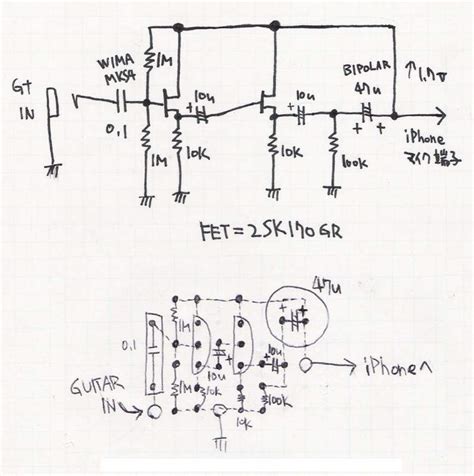 Gt
IN
WIMA
MKS4
0.1
1M
1M
+
10u
10K
+
10u
10K
100K
BIPOLAR
47u
+
+
↑1.7V
iPhone
マイク端子
FET=2SK170GR
47u
0.1
1M
1M
10u
+
10K
+
10u
10K
100K
+
+
GUITAR
IN
iPhoneへ